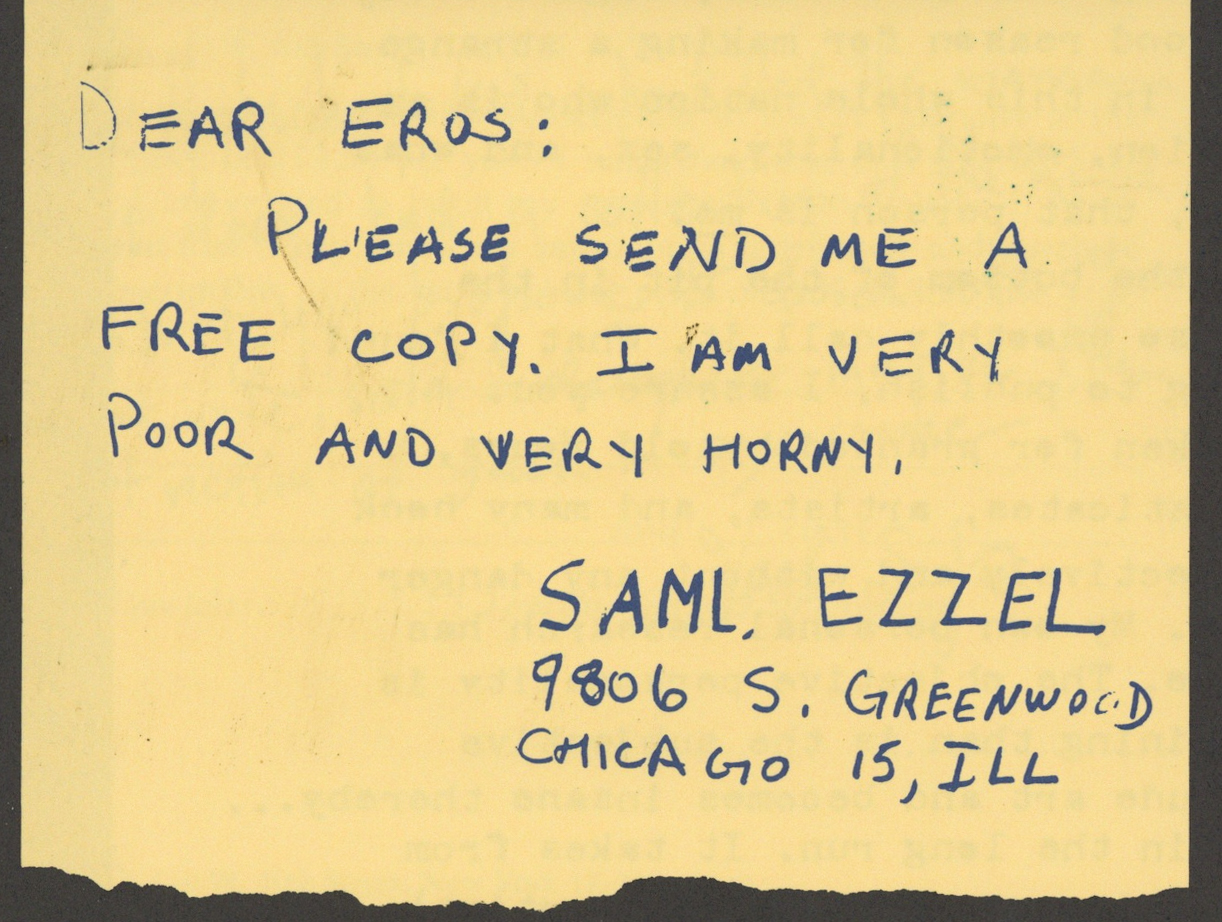 DEAR EROS:
PLEASE SEND ME A
FREE COPY. I AM VERY
POOR AND VERY HORNY.
SAML. EZZEL
9806 S. GREENWOOD
CHICAGO 15, ILL